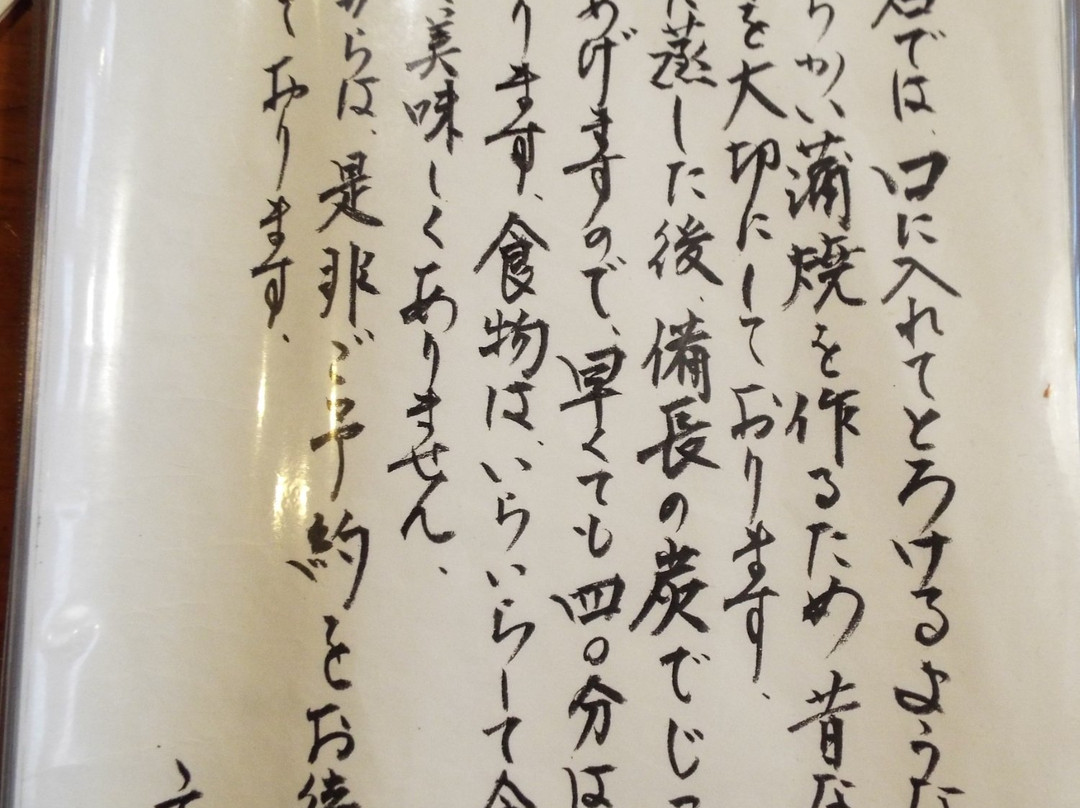 店では、口に入れてとろけるような
らかい蒲焼を作るため昔な
を大切にしております、
に蒸した後、備長の炭でじっ
めげますので、早くても四〇分は
ります、食物は、いらいらして食
美味しくありません、
からは、是非ご予約をお待
ております、